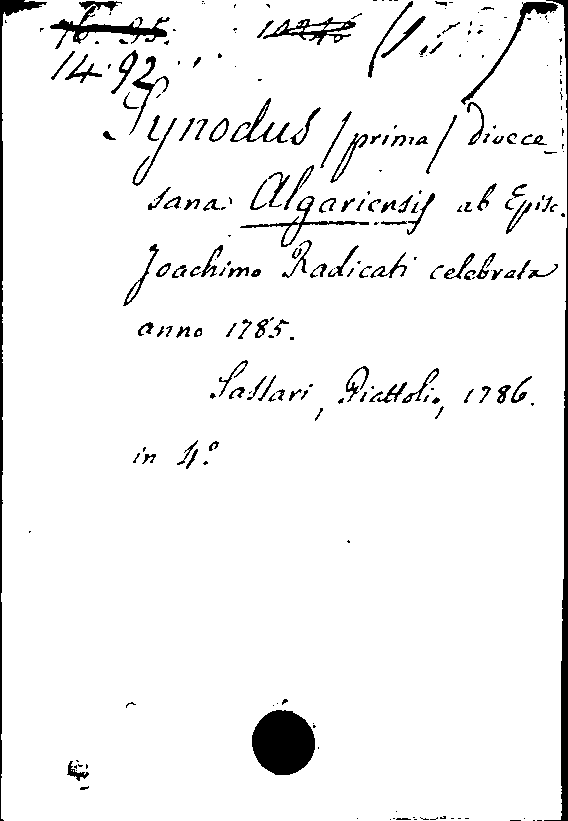 76. 95.
14.92
Synodus /prima/ dioece_
sana: Algariensis ab Episc.
Joachimo Radicati celebrata
anno 1785.
Sassari, Piattoli, 1786.
in 4º